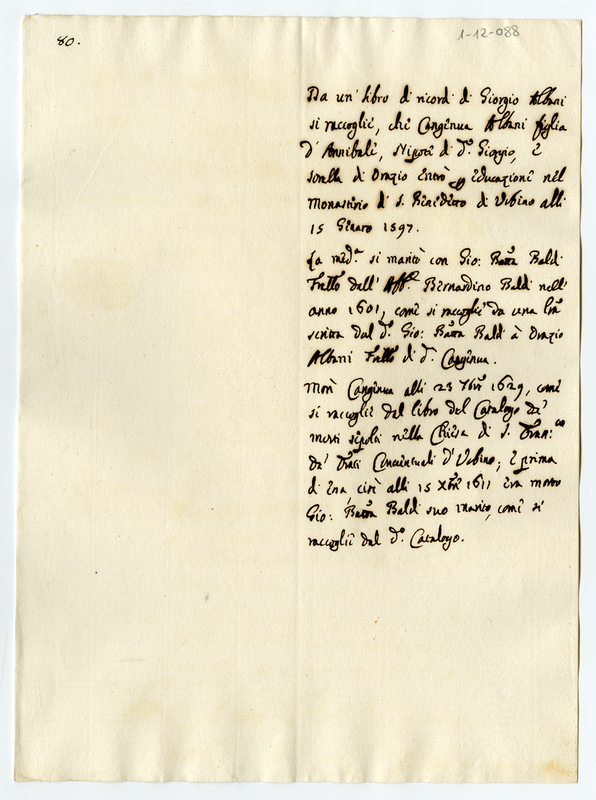 80.
1-12-088
Da un' libro di ricordi di Giorgio Albani
si raccoglie, che Canginua Albani figlia
d'Annibale, Nipote di d.º Giorgio, e
sorella di Orazio entrò p educazione nel
Monasterio di S. Benedetto di Urbino alli
15 Genaro 1597.
La med.ª si maritò con Gio: Batta Baldi
Frello dell' Abb.e Bernardino Baldi nell'
anno 1601, come si raccoglie da una lra
scritta dal d.º Gio: Batta Baldi à Orazio
Albani Frello di d.ª Canginua.
Morì Canginua alli 23 7bre 1629, come
si raccoglie dal libro del Catalogo de'
morti sepolti nella Chiesa di S. Fran.co
de' Frati Conventuali d'Urbino; e prima
di ena cioè alli 15 Xbre 1611 era morto
Gio: Batta Baldi suo marito, come si
raccoglie dal d.º Catalogo.